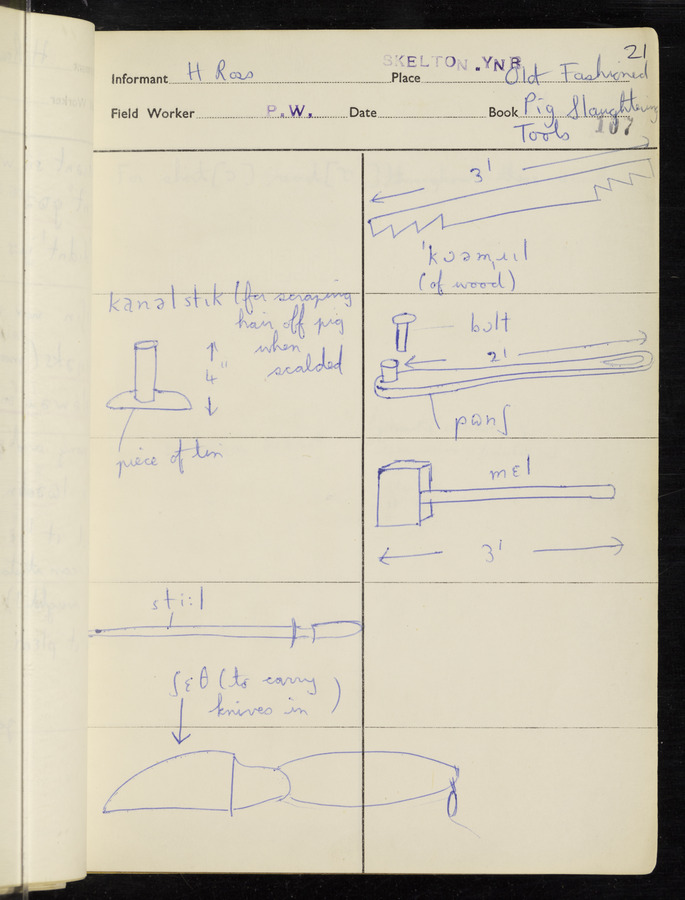 21
SKELTON .YNR
Informant H Ross Place Old Fashioned
Field Worker P.W. Date Book Pig Slaughtering
Tools 107
3'
(of wood)
kanəlstik (for scraping
hair off pig
when
scalded
4"
piece of tin
bolt
2'
pɒnʃ
mɛl
3'
sti:l
ʃɛθ (to carry
knives in)